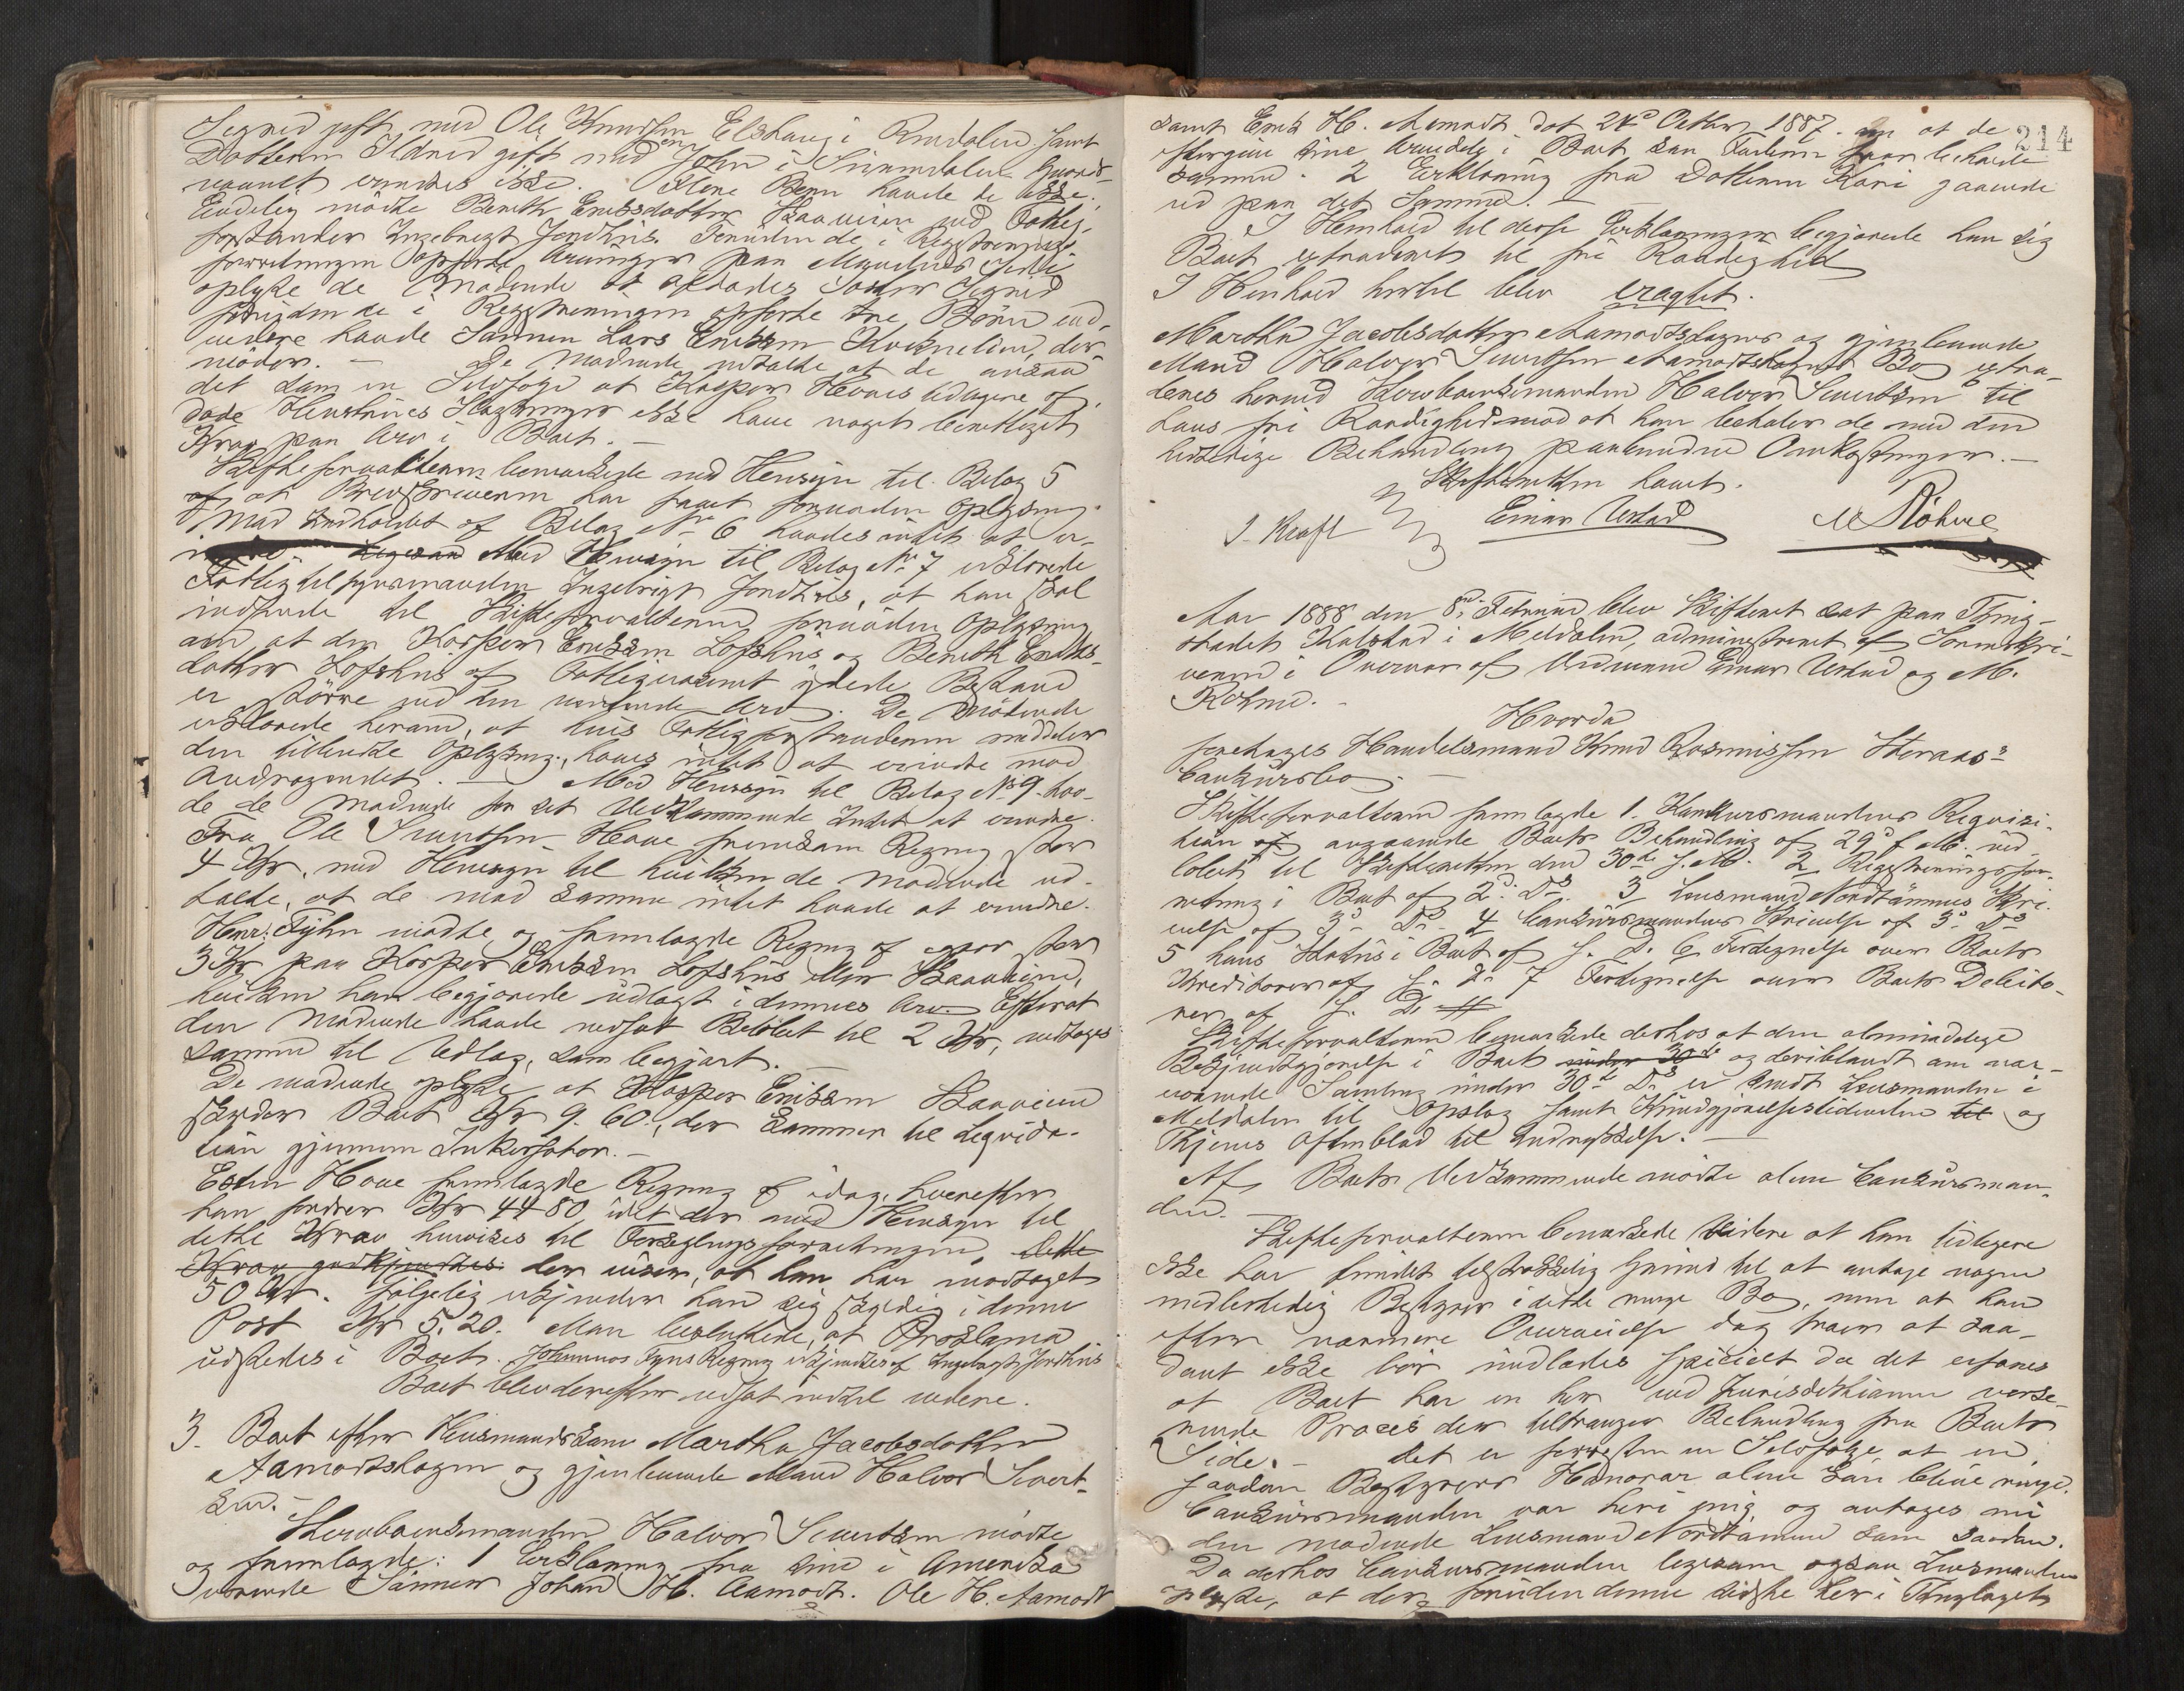 Segred gift med Ole Knudsen Elshaug i Rindalen samt
Datteren Ildrid gift med John i Surendalen
vaanet vindtes ikke. Flere Børn havde de ikke.
Endelig mødte Bereth Eriksdatter Haaveren ved Fattig-
forstander Ingebrigt Jordhus. Foruden de i Registrerings
forretningen opførte Arvinger paa Mandens Side
oplyste de Mødende at afdødes Søster Sigrid
foruden de i Registreringen opførte tre Børn end-
videre havde Sønnen Lars Eriksen der
møder. — De Mødende udtalte at de ansaa
det som en Selvfølge at Kasper Hoves Udlagere af
døde Henstrines Slægtninger ikke have noget berettiget
Krav paa Arv i Boet. —
Skifteforvalteren bemærkede med Hensyn til Bilag 5
at Brevskriveren har faaet fornøden Oplysning.
Mod Indholdet af Bilag No 6 havdes intet at er-
indre. Ligesaa Med Hensyn til Bilag No 7 erklærede
Fattigtilsynsmanden Ingebrigt Jordhus, at han skal
indsende til Skifteforvalteren fornøden Oplysning
om, at den Kasper Eriksen Løfshus og Bereth Eriks-
datter Løfshus af Fattigvæsenet ydede Bistand
er større end den ventende Arv. De Mødende
erklærede herom, at hvis Fattigforstanderen meddeler
den tilbudte Oplysning, haves intet at erindre mod
Andragendet. — Med Hensyn til Bilag No 9 hav-
de de Mødende for det Vedkommende Intet at erindre.
Fra Ole Sivertsen Hove fremkom Regning stor
4 Kr, med Hensyn til hvilken de Mødende ud-
talte, at de mod samme intet havde at erindre.
Henr. Fyhn mødte og fremlagde Regning af igaar stor
3 Kr paa Kasper Eriksen Løfshus eller Haaveren,
hvilken han begjærede udlagt i dennes Arv. Efterat
den Mødende havde nedsat Beløbet til 2 Kr, vedtoges
samme til Udlæg, som begjært. —
De mødende oplyste at Kasper Eriksen Haaveren
skylder Boet Kr 9.60, der kommer til Liqvida-
tion gjennem Inkassator. —
Esten Hove fremlagde Regning af idag, hvorefter
han fordrer Kr 44 80 idet der med Hensyn til
dette Krav henvises til Forseglingsforretningen, dette
Krav godkjendtes. der viser, at han har modtaget
50 Kr. Følgelig erkjender han sig skyldig i denne
Post Kr 5.20. Man besluttede, at Proklama
udstedes i Boet. Johannes Fyns Regning erkjendtes af Ingebrigt Jordhus
Boet blev derefter udsat indtil videre.
3. Boet efter Husmandskone Martha Jacobsdatter
Aamotshagen og gjenlevende Mand Halvor Sivert-
sen. —
Stervboenkemanden Halvor Sivertsen mødte
og fremlagde: 1 Erklæring fra sine i Amerika
værende Sønner Johan H. Aamodt. Ole H. Aamodt
214
samt Erik H. Aamodt dat 24de Octbr 1887. at de
eftergive sine Arvedele i Boet saa Faderen kan beholde
samme. 2 Erklæring fra Datteren Kari gaaende
ud paa det Samme. —
I Henhold til disse Erklæringer begjærede han sig
Boet extraderet til fri Raadighed
I Henhold hertil blev eragtet.
Martha Jacobsdatter Aamodtshagens og gjenlevende
Mand Halvor Sivertsen Aamodtshagens Bo extra-
deres herved Stervboenkemanden Halvor Sivertsen til
hans fri Raadighed mod at han betaler de med den
hidtidige Behandling paaløbende Omkostninger. —
Skifteretten hævet.
J. Kraft Einar Ustad M Röhme
Aar 1888 den 8de Februar blev Skifteret sat paa Thing-
stedet Kalstad i Meldalen, administreret af Sorenskri-
veren i Overvær af Vidnerne Einar Ustad og M.
Röhme. —
Hvorda
foretages Handelsmand Knud Rasmussen Steraas's
Concursbo. —
Skifteforvalteren fremlagde 1. Konkursmandens Reqvisi-
tion angaaende Boets Behandling af 29de f. M. ind-
løbet til Skifteretten den 30de f. M. 2 Registreringsfor-
retning i Boet af 2d. Ds 3 Lensmand Nordtømmes Skri-
velse af 3d. Ds 4 Concursmandens Skrivelse af 3d. Ds
5 hans Status i Boet af s. D. 6 Fortegnelse over Boets
Kreditorer af s. D. 7 Fortegnelse over Boets Debito-
rer af s. D.
Skifteforvalteren bemærkede derhos at den almindelige
Bekjendtgjørelse i Boet under 30de og deriblandt om nær-
værende Samling under 30de Ds er sendt Lensmanden i
Meldalen til Opslag samt Kundgjørelsestidenden til og
Thjems Aftenblad til Indrykkelse. —
Af Boets Vedkommende mødte alene Concursman-
den. —
Skifteforvalteren bemærkede videre at han tidligere
ikke har fundet tilstrækkelig Grund til at antage nogen
midlertidig Bestyrer i dette ringe Bo, men at han
efter nærmere Overveielse dog tror at saa-
dant ikke bør undlades specielt da det erfares
at Boet har en her ved Jurisdiktionen verse-
rende Proces der tiltrænger Behandling fra Boets
Side. — Det er forresten en Selvfølge, at en
saadan Bestyrers Honorar alene kan blive ringe.
Concursmanden var heri enig og antages nu
den mødende Lensmand Nordtømme som saadan.
Da derhos Concursmanden ligesom ogsaa Lensmanden
oplyste, at der foruden denne sidste her i Thinglaget